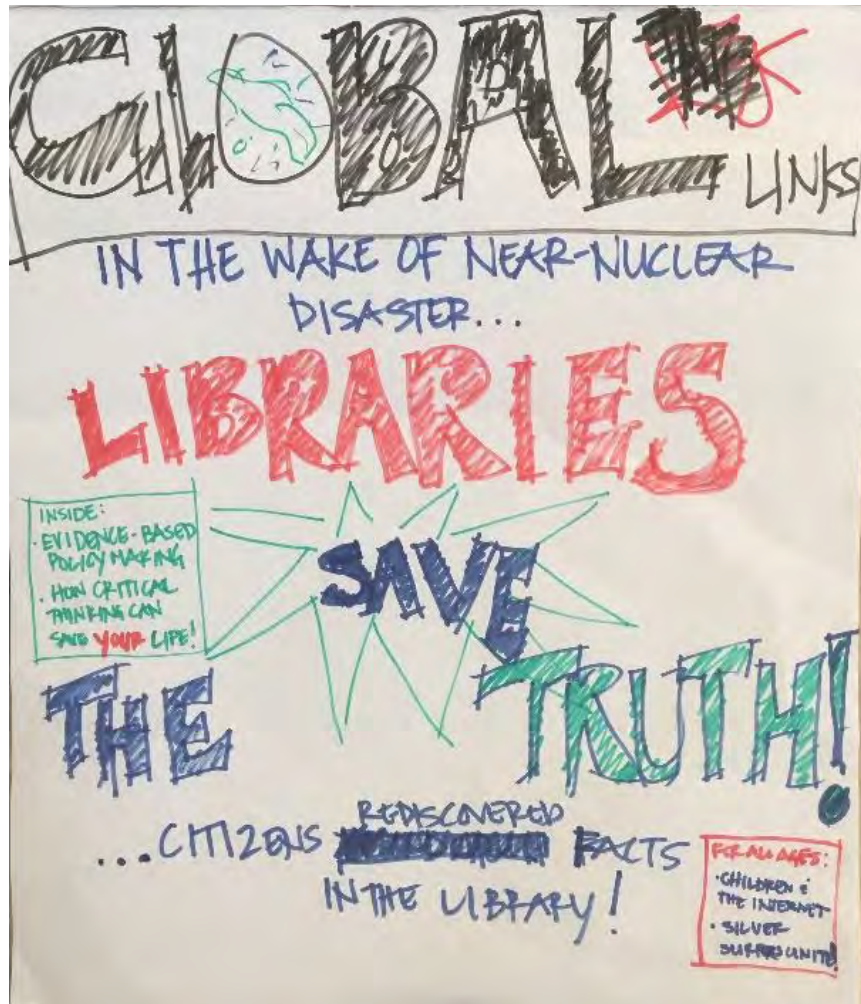 GLOBAL
LINKS
IN THE WAKE OF NEAR-NUCLEAR
DISASTER...
LIBRARIES
INSIDE:
· EVIDENCE-BASED
POLICY MAKING
· HOW CRITICAL
THINKING CAN
SAVE YOUR LIFE!
SAVE
THE TRUTH!
REDISCOVERED
...CITIZENS FACTS
IN THE LIBRARY!
FOR ALL AGES:
· CHILDREN &
THE INTERNET
· SILVER
SURFERS UNITE!